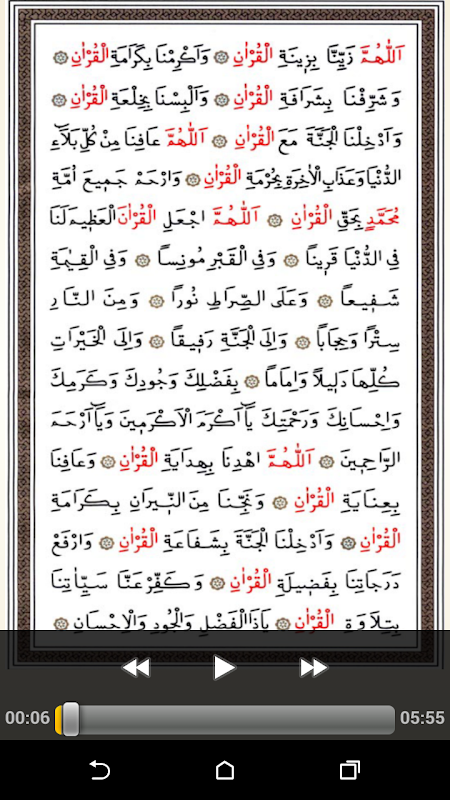 اَللّٰهُمَّ زَيِّنَّا بِزِينَةِ الْقُرْاٰنِ ۞ وَاَكْرِمْنَا بِكَرَامَةِ الْقُرْاٰنِ ۞
وَشَرِّفْنَا بِشَرَافَةِ الْقُرْاٰنِ ۞ وَاَلْبِسْنَا بِخِلْعَةِ الْقُرْاٰنِ ۞
وَاَدْخِلْنَا الْجَنَّةَ مَعَ الْقُرْاٰنِ ۞ اَللّٰهُمَّ عَافِنَا مِنْ كُلِّ بَلَاۤءِ
الدُّنْيَا وَعَذَابِ الْاٰخِرَةِ بِحُرْمَةِ الْقُرْاٰنِ ۞ وَارْحَمْ جَمِيعَ اُمَّةِ
مُحَمَّدٍ بِحَقِّ الْقُرْاٰنِ ۞ اَللّٰهُمَّ اجْعَلِ الْقُرْاٰنَ الْعَظِيمَ لَنَا
فِى الدُّنْيَا قَرِينًا ۞ وَفِى الْقَبْرِ مُونِسًا ۞ وَفِى الْقِيٰمَةِ
شَفِيعًا ۞ وَعَلَى الصِّرَاطِ نُورًا ۞ وَمِنَ النَّارِ
سِتْرًا وَحِجَابًا ۞ وَاِلَى الْجَنَّةِ رَفِيقًا ۞ وَاِلَى الْخَيْرَاتِ
كُلِّهَا دَلِيلًا وَاِمَامًا ۞ بِفَضْلِكَ وَجُودِكَ وَكَرَمِكَ
وَاِحْسَانِكَ وَرَحْمَتِكَ يَاۤ اَكْرَمَ الْاَكْرَمِينَ وَيَاۤ اَرْحَمَ
الرَّاحِمِينَ ۞ اَللّٰهُمَّ اهْدِنَا بِهِدَايَةِ الْقُرْاٰنِ ۞ وَعَافِنَا
بِعِنَايَةِ الْقُرْاٰنِ ۞ وَنَجِّنَا مِنَ النِّيرَانِ بِكَرَامَةِ
الْقُرْاٰنِ ۞ وَاَدْخِلْنَا الْجَنَّةَ بِشَفَاعَةِ الْقُرْاٰنِ ۞ وَارْفَعْ
دَرَجَاتِنَا بِفَضِيلَةِ الْقُرْاٰنِ ۞ وَكَفِّرْ عَنَّا سَيِّاٰتِنَا
بِتِلَاوَةِ الْقُرْاٰنِ ۞ يَاذَا الْفَضْلِ وَالْجُودِ وَالْاِحْسَانِ ۞
00:06 05:55